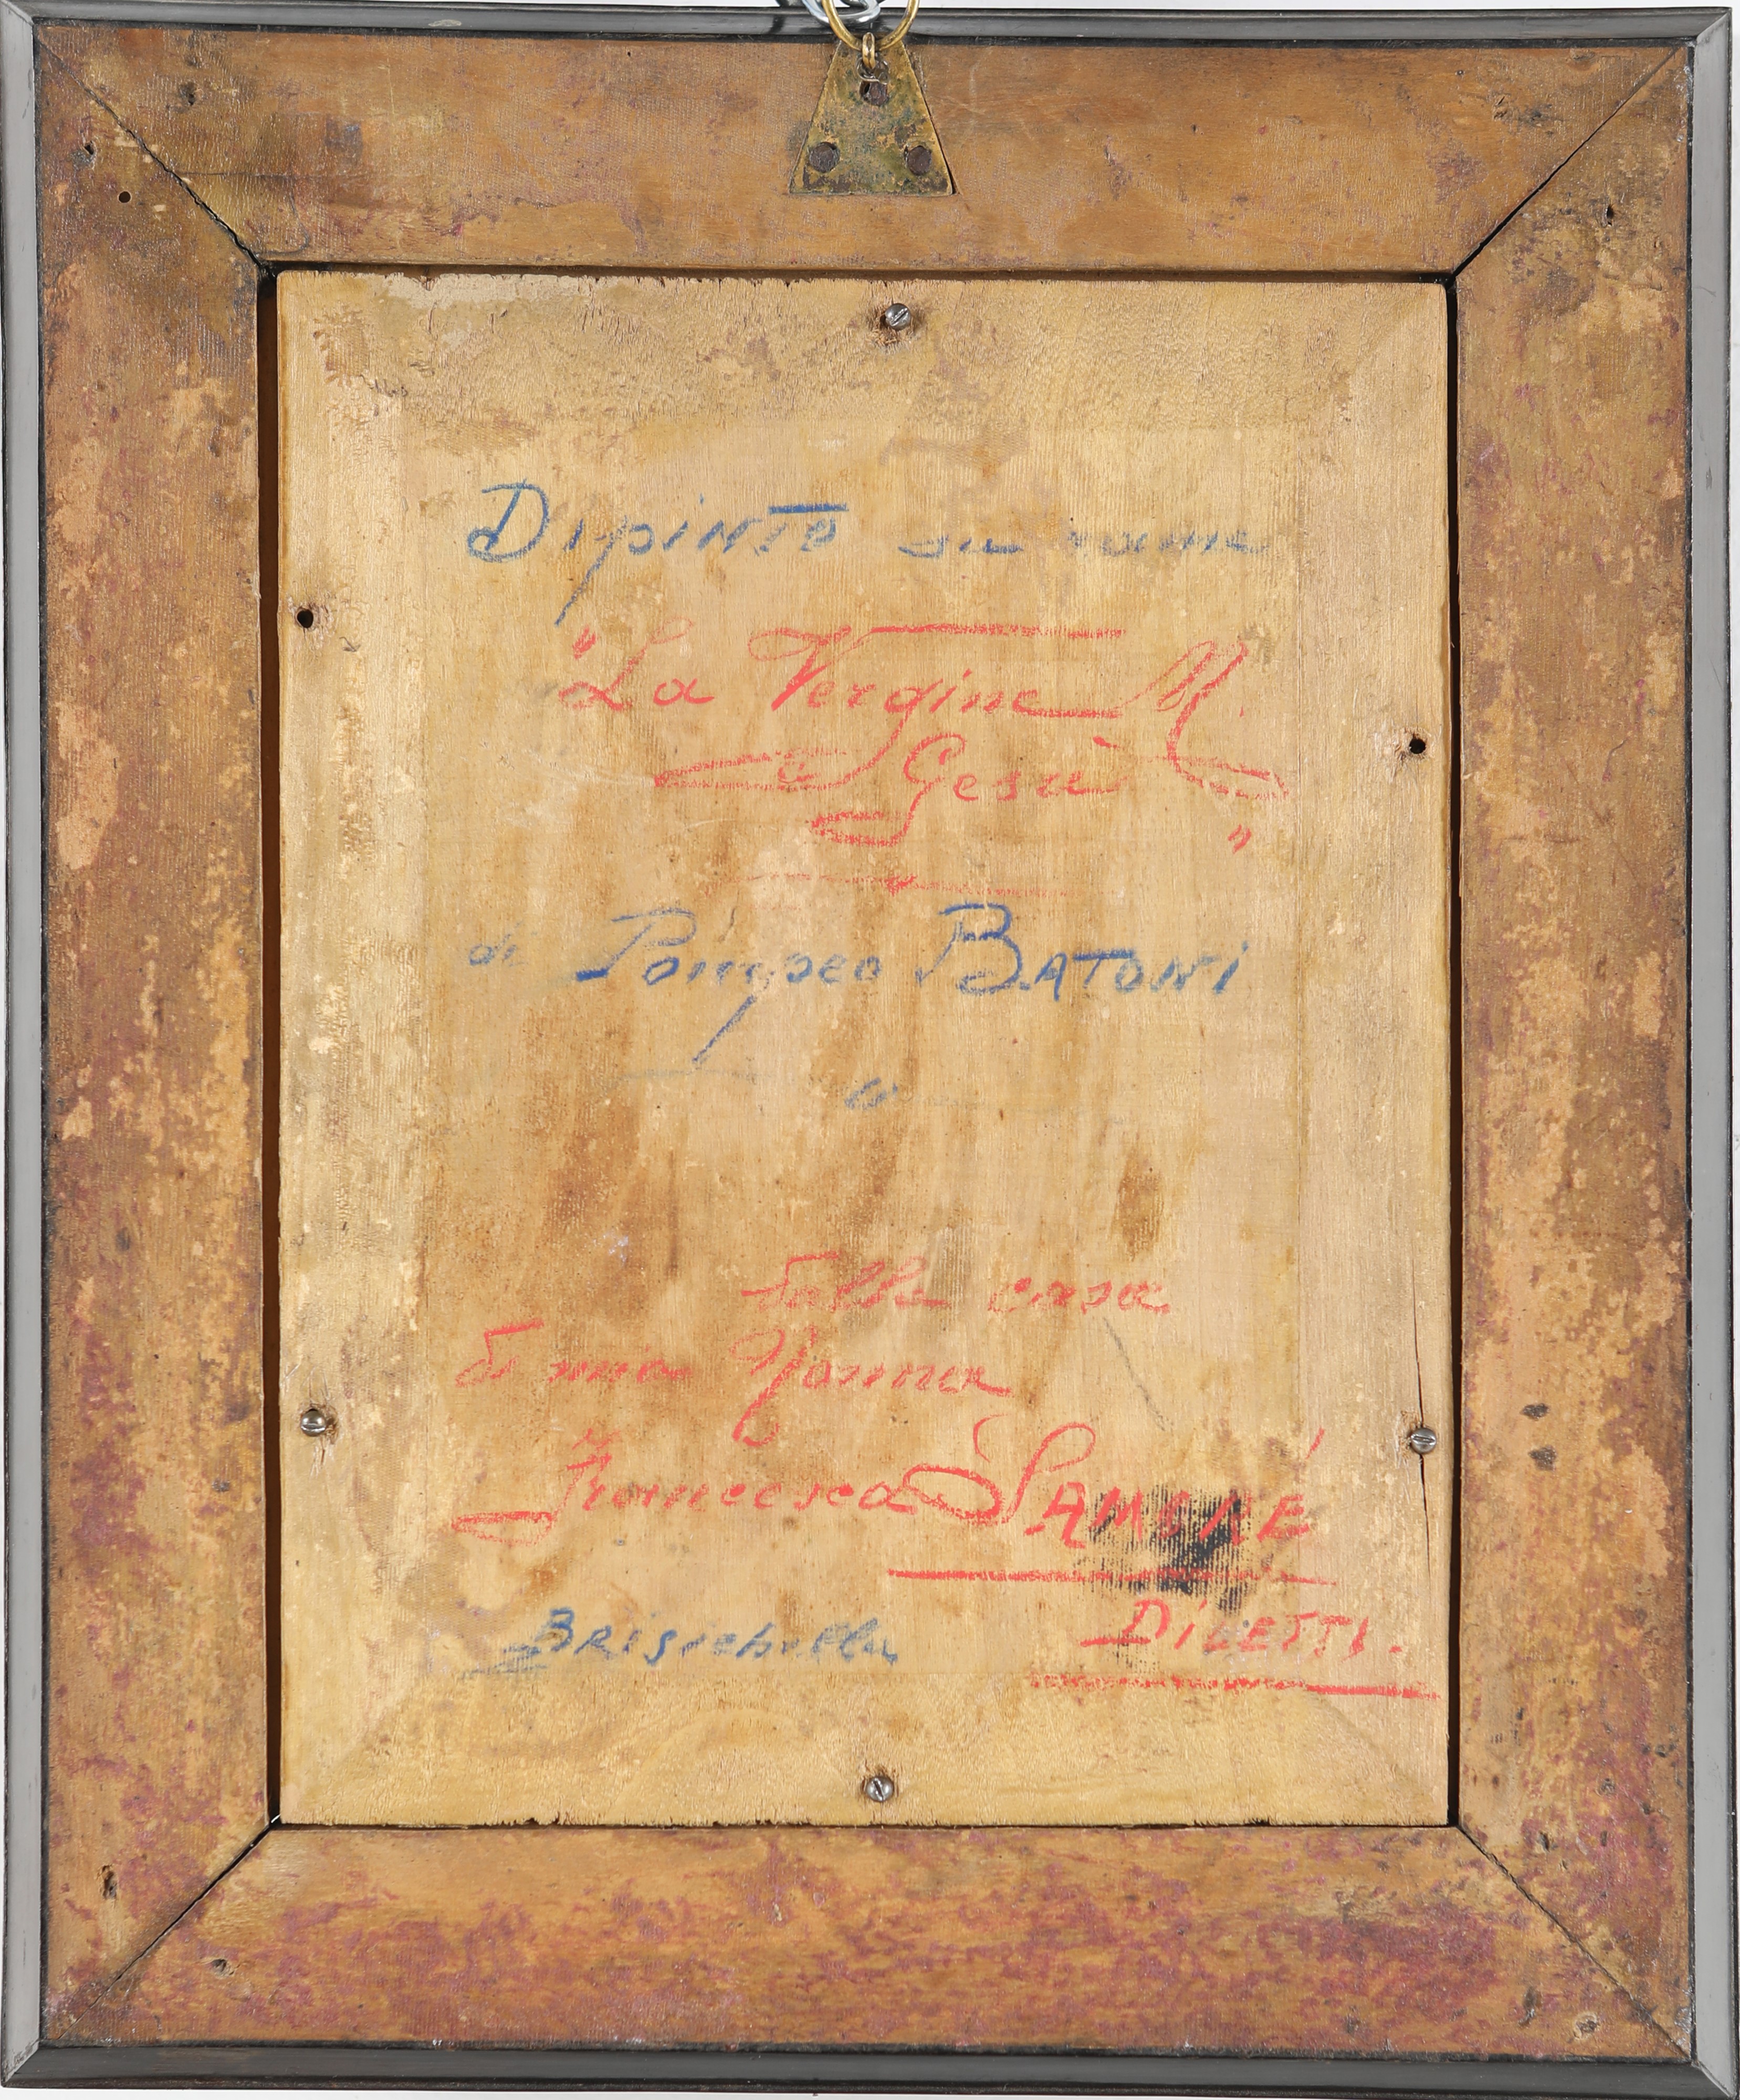 Dipinto su rame
"La Vergine M.
e Gesù"
di Pompeo BATONI
Dalla casa
di mia Nonna
Francesca SAMORÉ
Brisighella DILETTI.